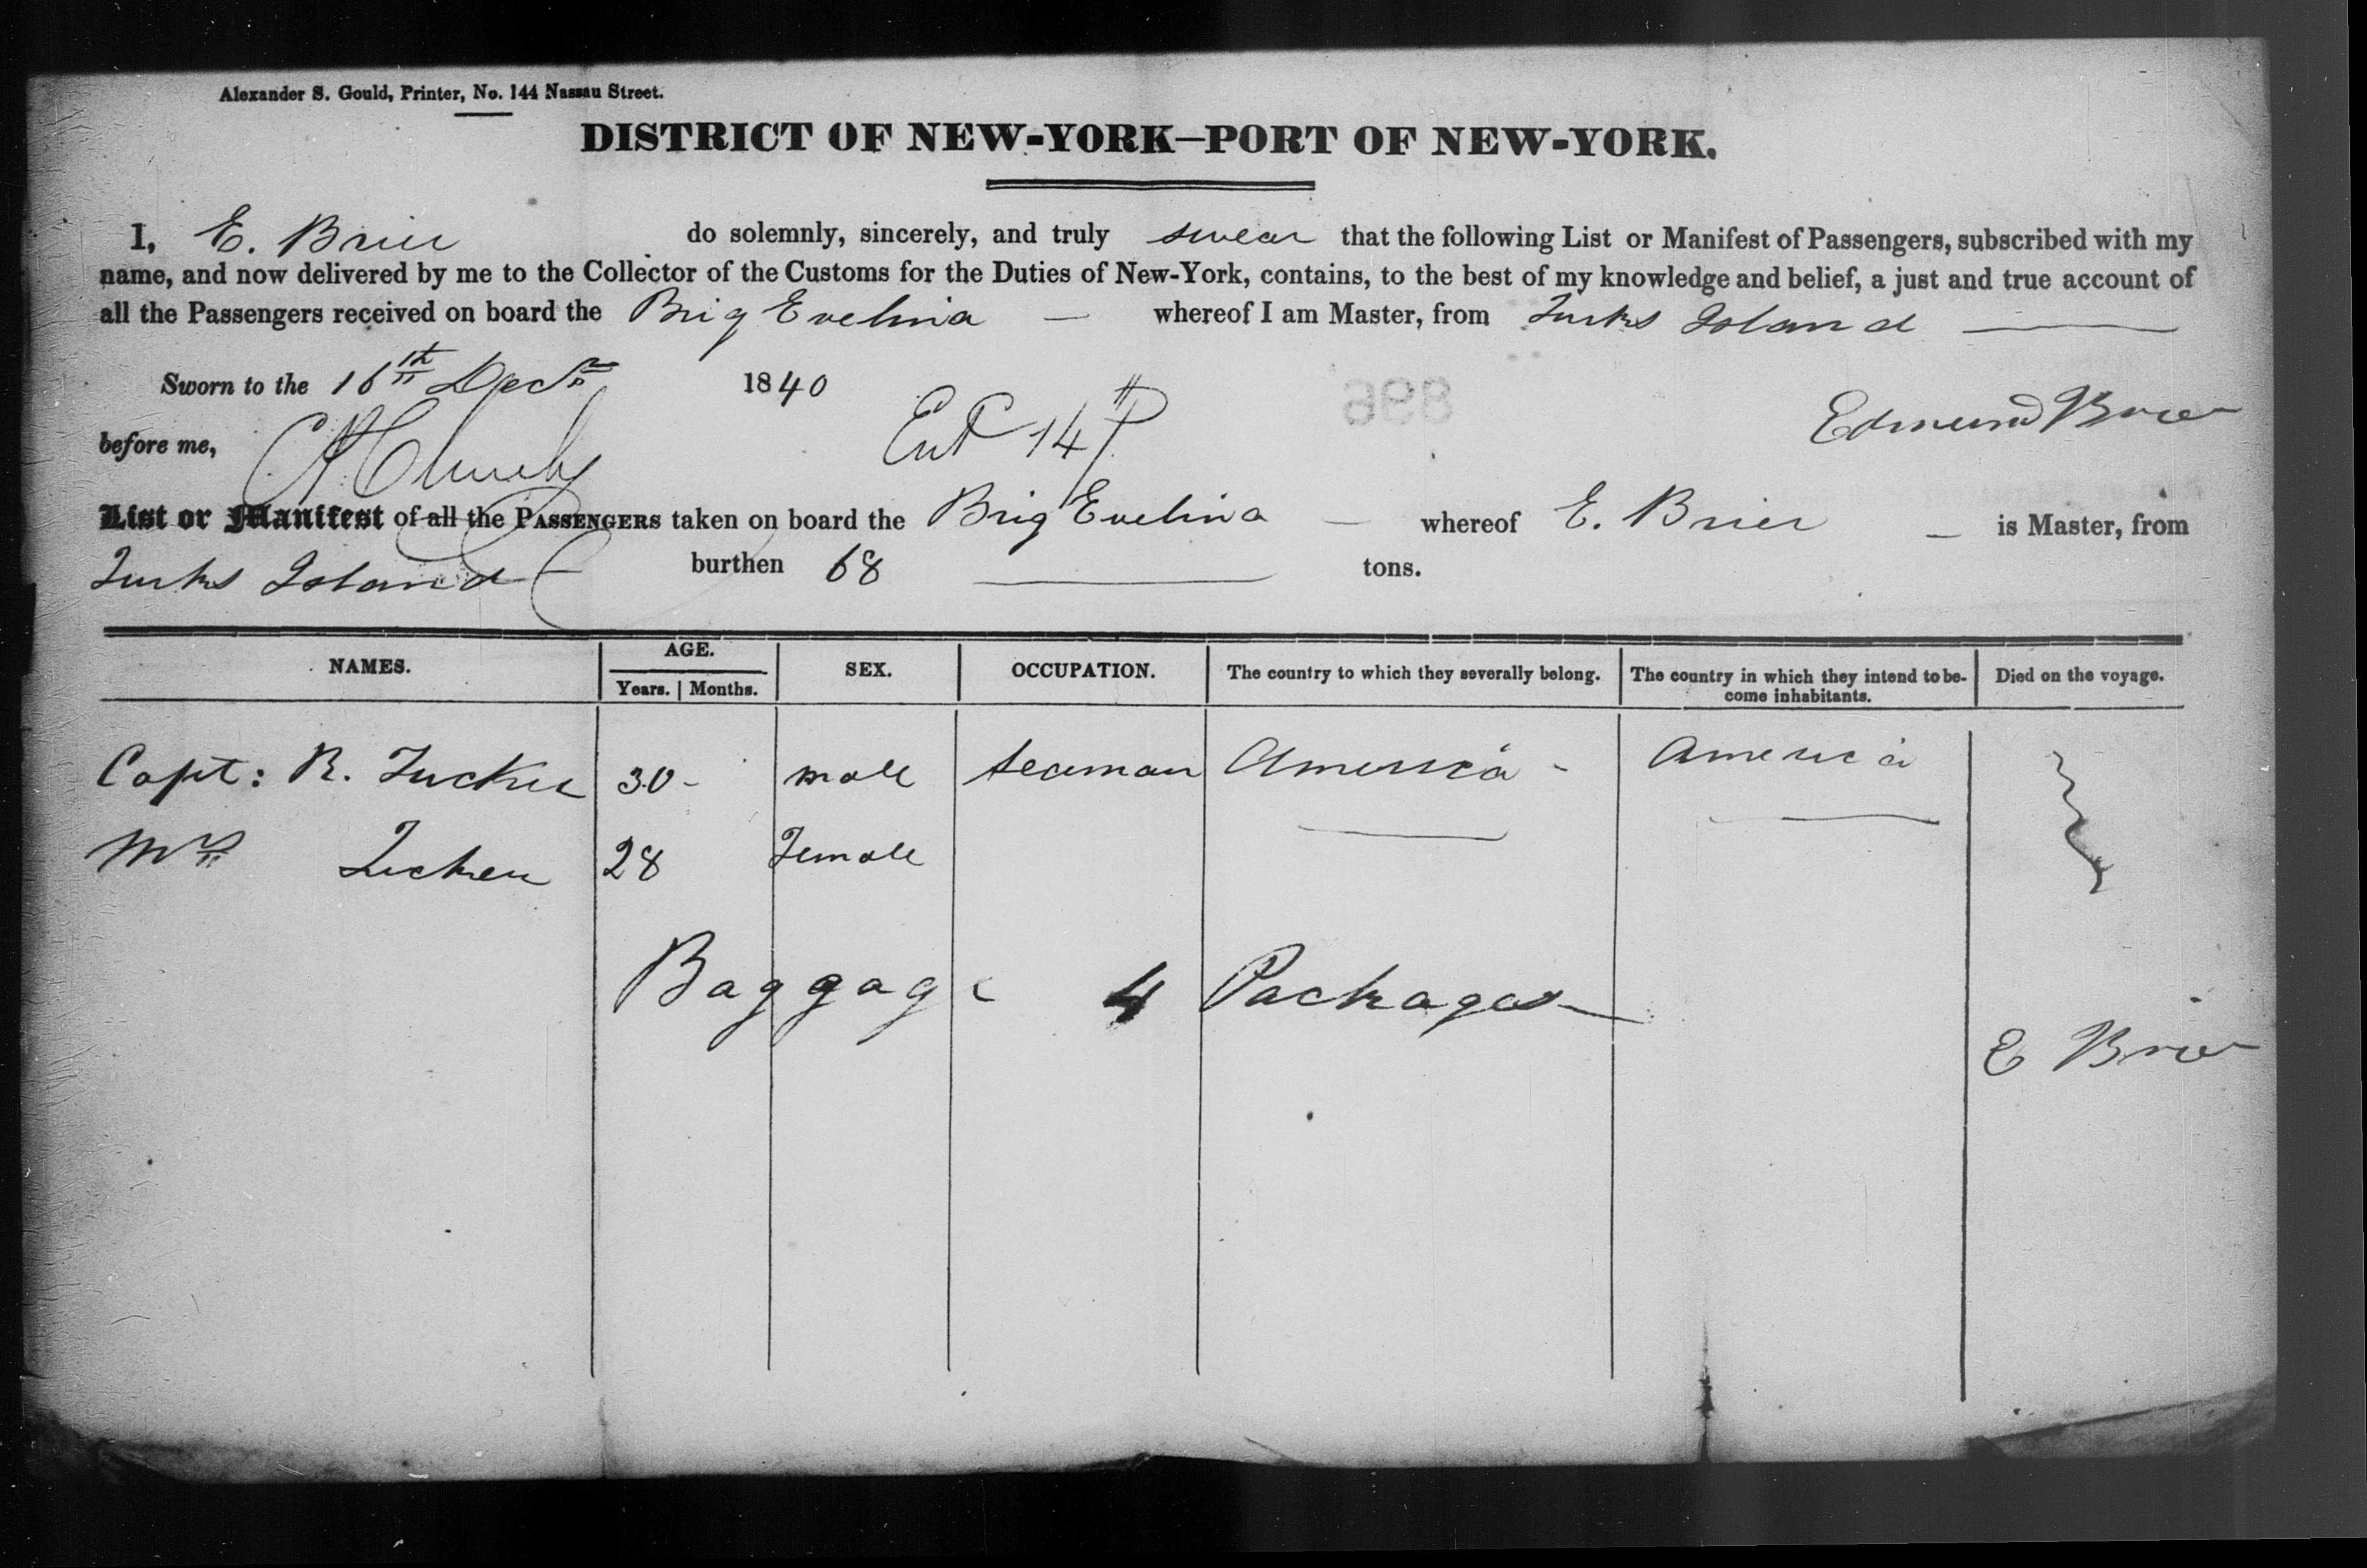 Alexander S. Gould, Printer, No. 144 Nassau Street.
DISTRICT OF NEW-YORK—PORT OF NEW-YORK.
I, E. Brier do solemnly, sincerely, and truly swear that the following List or Manifest of Passengers, subscribed with my
name, and now delivered by me to the Collector of the Customs for the Duties of New-York, contains, to the best of my knowledge and belief, a just and true account of
all the Passengers received on board the Brig Evelina — whereof I am Master, from Turks Island —
Sworn to the 16th Decr 1840
896
Edmund Brier
before me,
Ent 14
List or Manifest of all the PASSENGERS taken on board the Brig Evelina — whereof E. Brier — is Master, from
Turks Island — burthen 68 — tons.
NAMES. AGE. SEX. OCCUPATION. The country to which they severally belong. The country in which they intend to be- Died on the voyage.
Years. Months. come inhabitants.
Capt: R. Tucker 30 - male seaman America - America
Mrs Tucker 28 Female
Baggage 4 Packages
E Brier